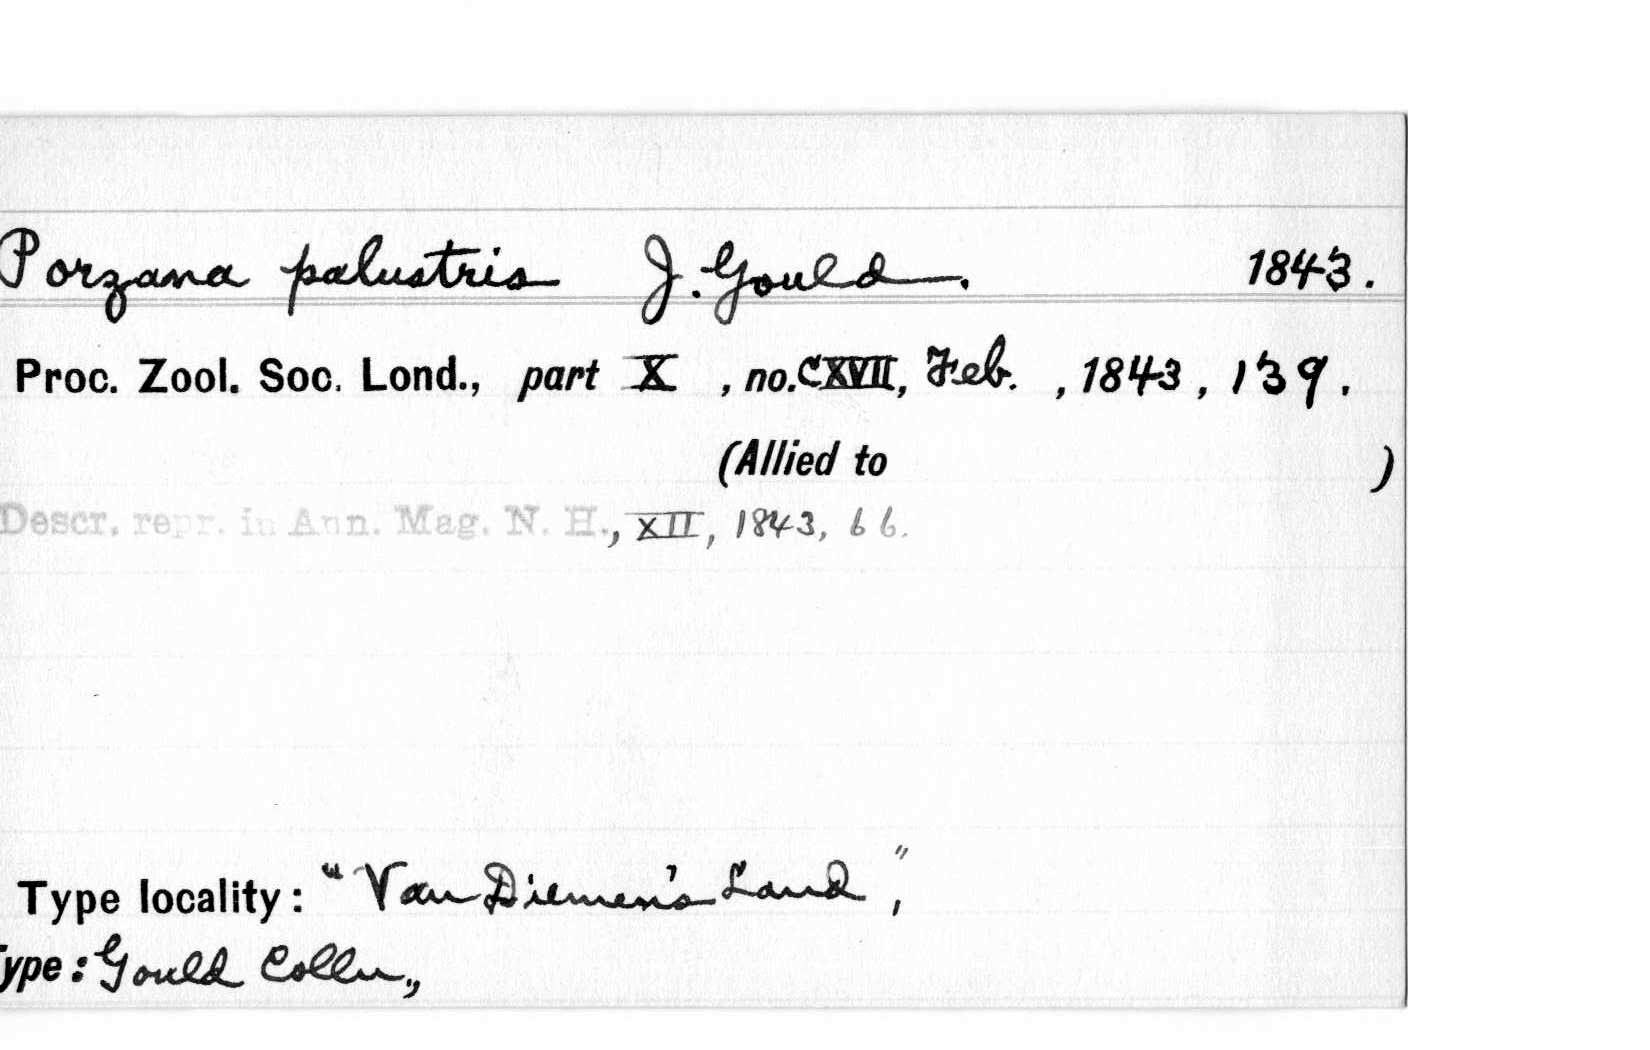 Porzana palustris J. Gould. 1843.
Proc. Zool. Soc. Lond., part X , no. CXVII, Feb. , 1843 , 139 .
(Allied to )
Descr. repr. in Ann. Mag. N. H., XII, 1843, 66.
Type locality: "Van Diemen's Land",
Type: Gould Colln.,